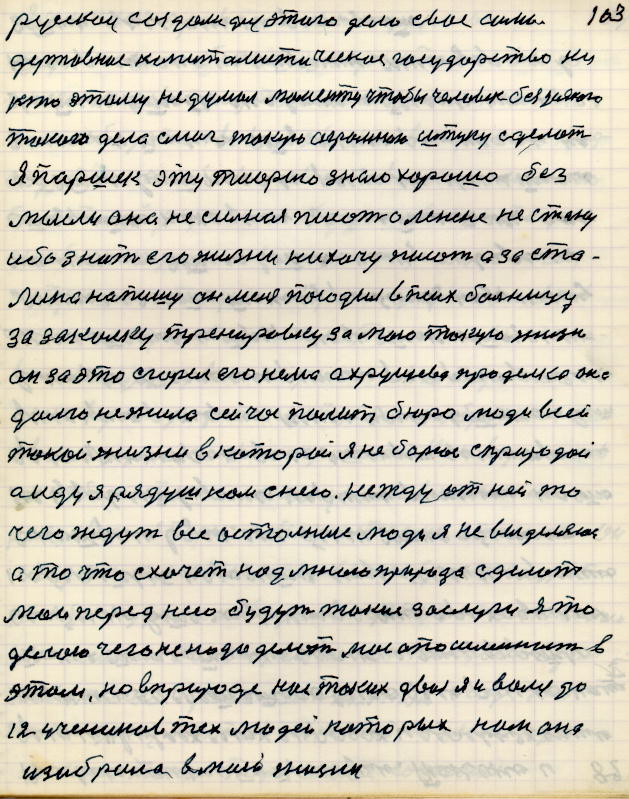 103
русской создали для этого дело свое само
державное капиталистическое государство ни
кто этому не думал моменту чтобы человек без всякого
такого дела смог такую огромною штуку сделат
Я паршек эту тиорию знаю хорошо без
мысли она не силная писат о ленине не стану
ибо знат его жизни ни хочу писат а за ста-
лина напишу он меня посодил в псих болницу
за закалку тренеровку за мою такую жизн
он за это сгорел его нема а хрущева проделка она
долго не жила сейчас полит бюро люди всей
такой жизни в которой я не борюс с природой
а иду я рядушком с нею. не жду от ней то
чего ждут все осталные люди я не выделяюс
а то что схочет надмною природа сделат
мои перед нею будут такие заслуги я то
делаю чего не надо делат моя в
этом, но в природе нас таких двоя я и валя до
12 учеников тех людей которых нам она
избрала в моей жизни